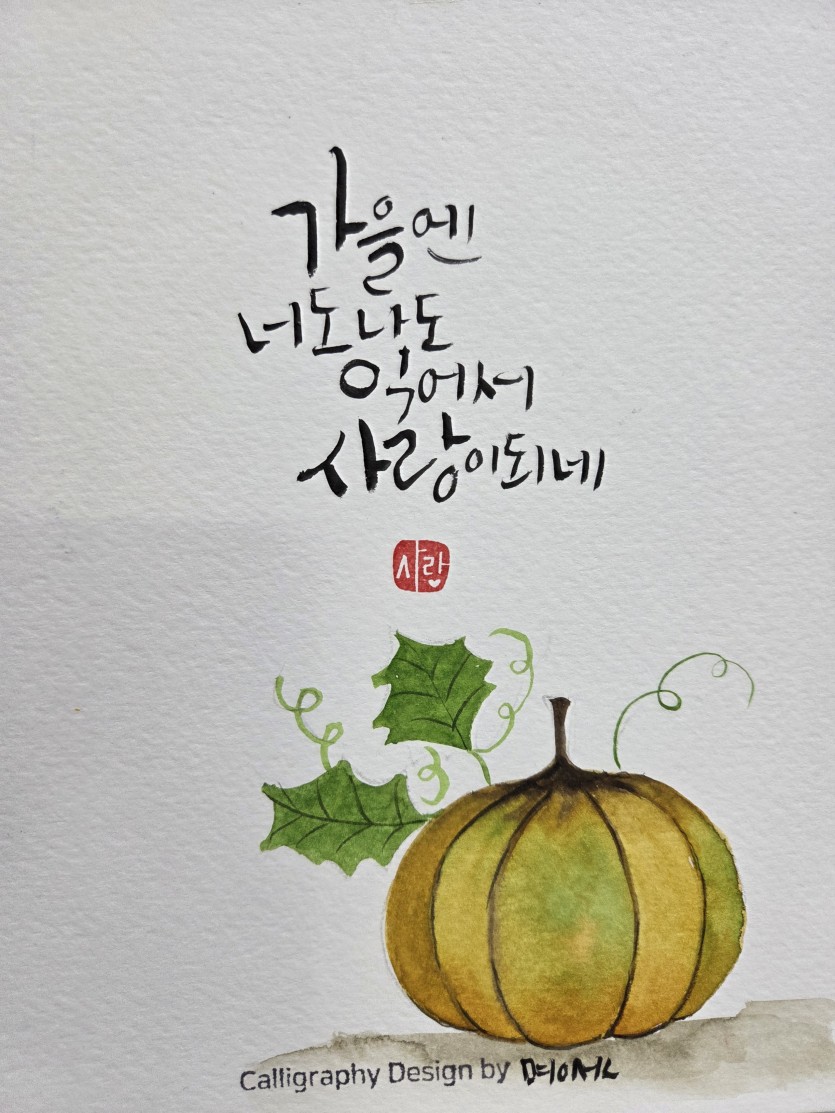 가을엔
너도 나도
익어서
사랑이 되네
사랑
Calligraphy Design by